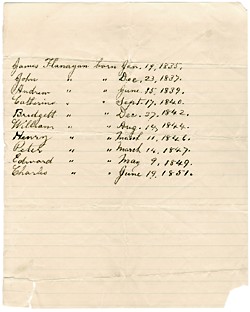 James Flanagan born Jan. 19, 1835.
John " " Dec. 23, 1837.
Andrew " " June 15, 1839.
Catherine " " Sept. 17, 1840.
Bridgett " " Dec. 27, 1842.
William " " Aug. 14, 1844.
Henry " " March 11, 1846.
Peter " " March 14, 1847.
Edward " " May 9, 1849.
Charles " " June 19, 1851.